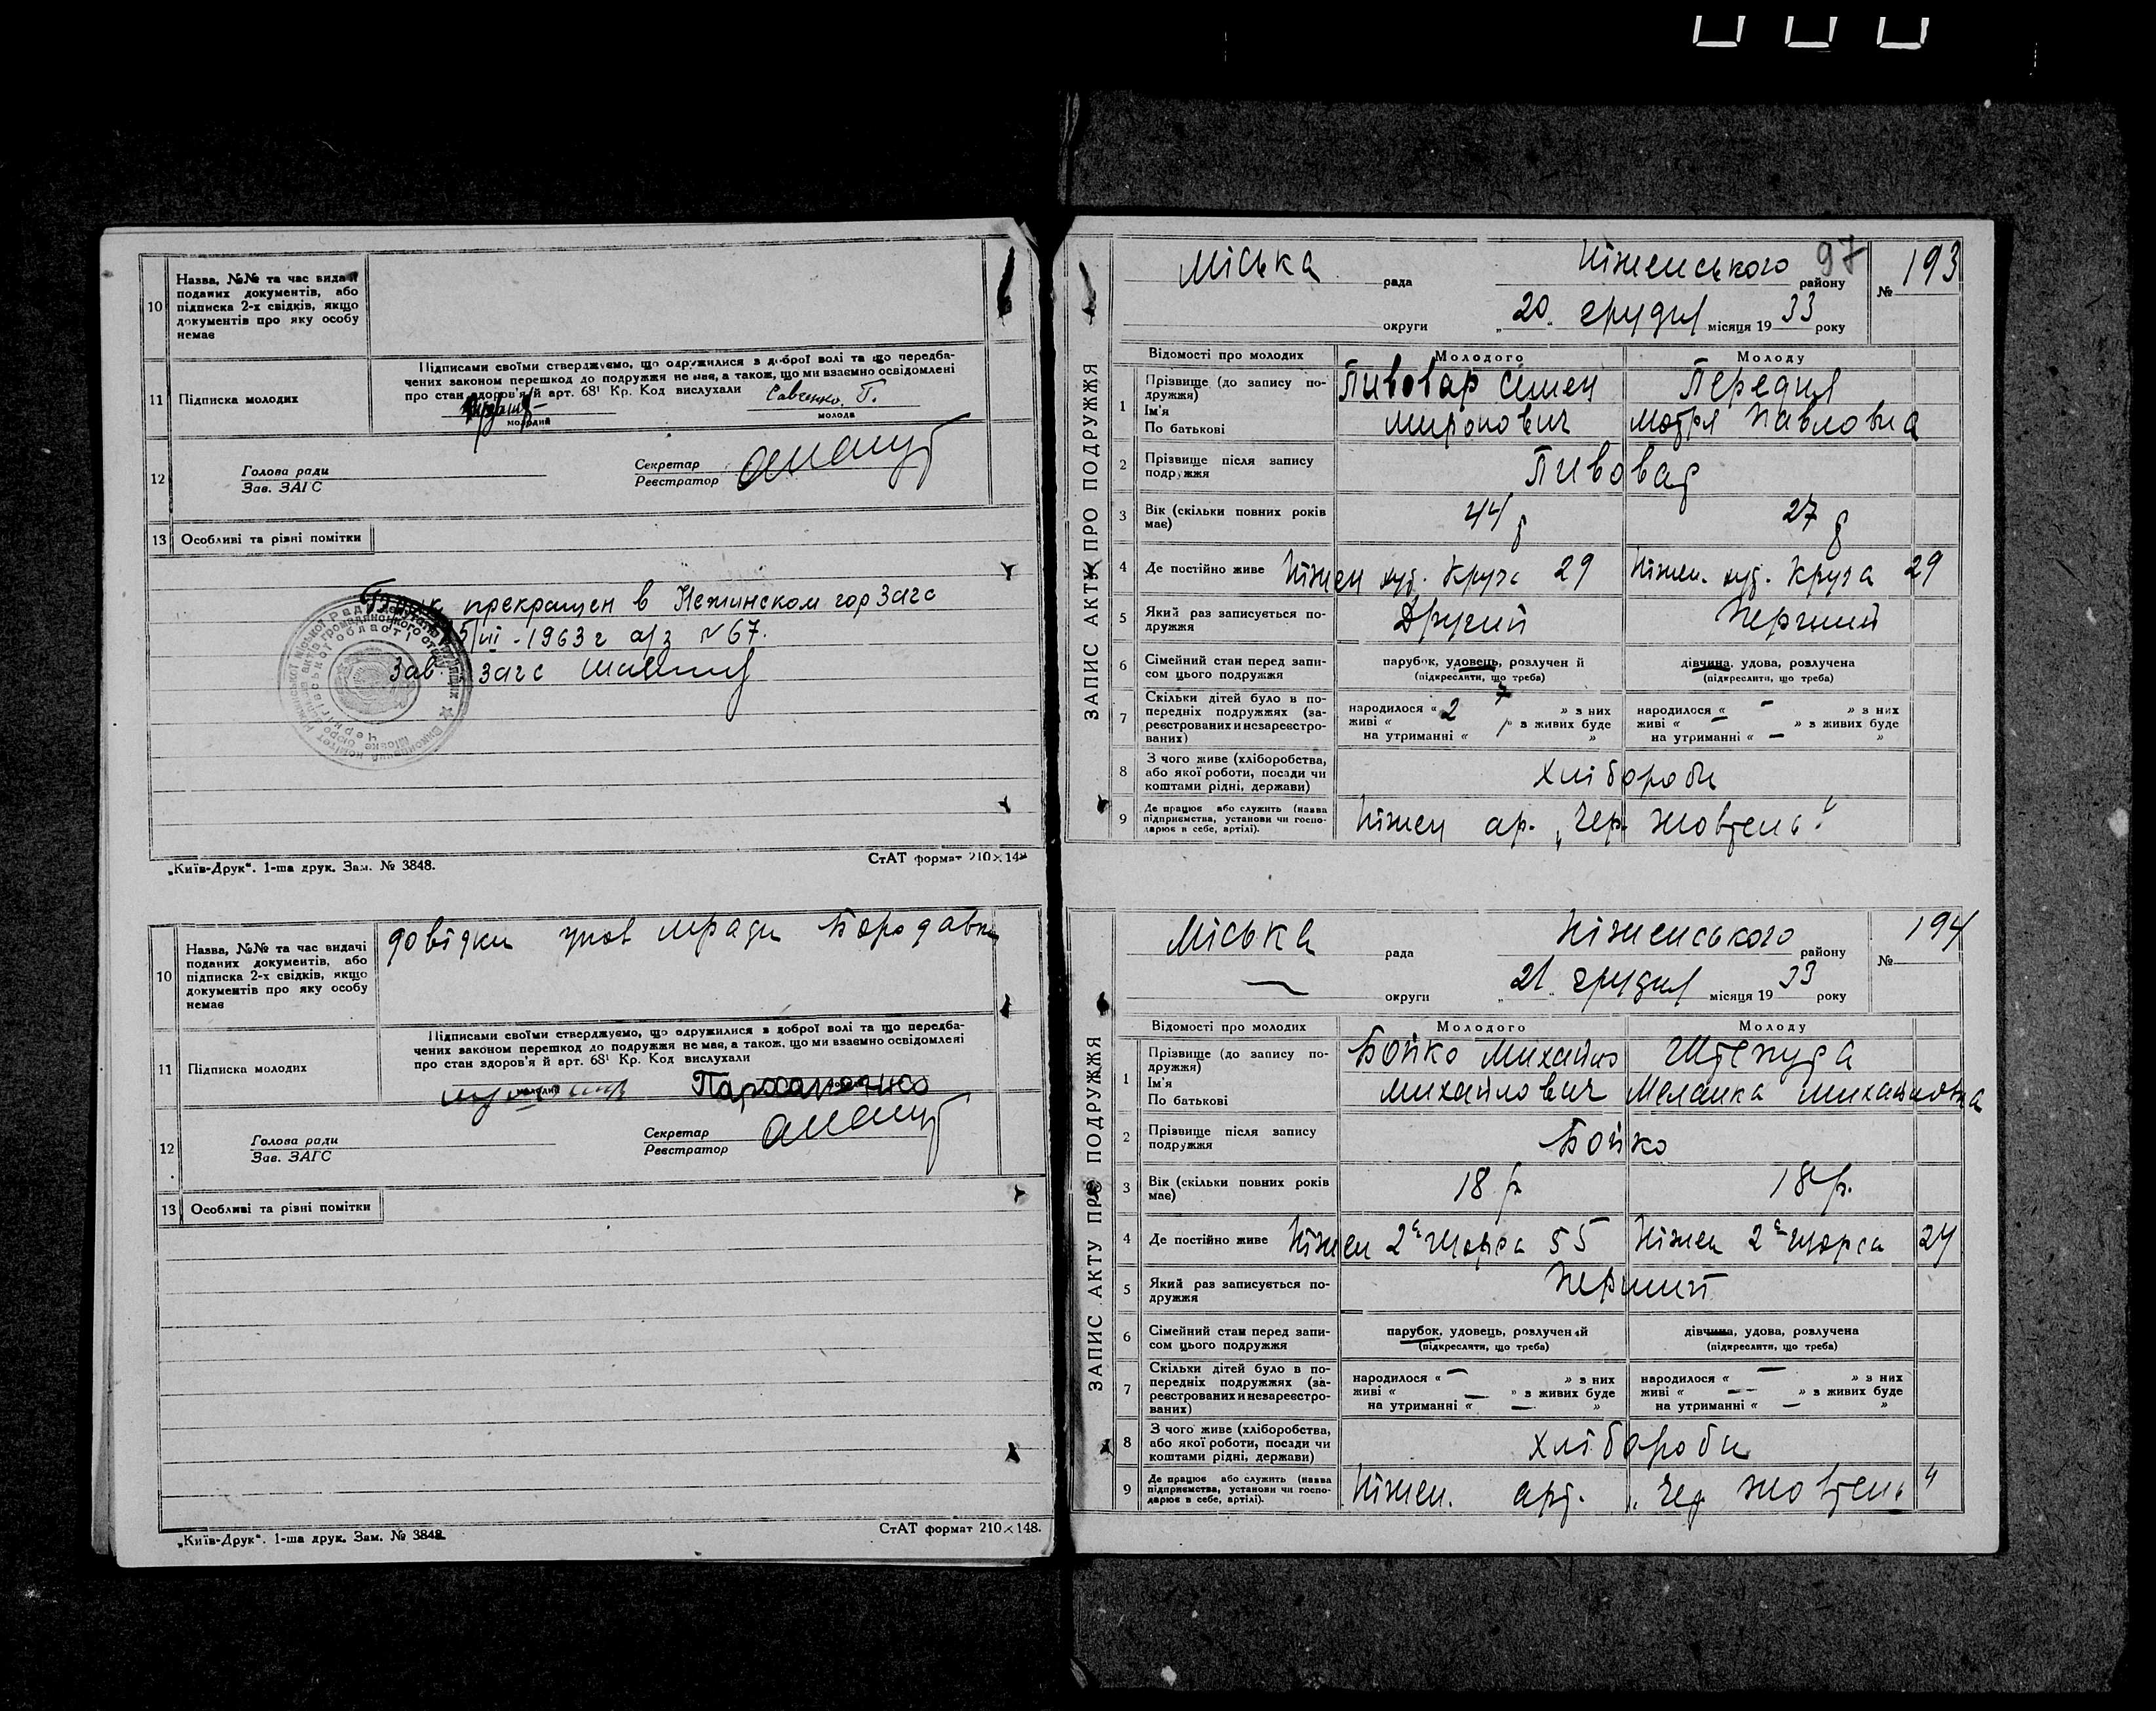 10 Назва, №№ та час видачі
поданих документів, або
підписка 2-х свідків, якщо
документів про яку особу
немає
Підписами своїми стверджуємо, що одружилися з доброї волі та що передба-
чених законом перешкод до подружжя не має, а також, що ми взаємно освідомлені
про стан здоров'я й арт. 68¹ Кр. Код вислухали
11 Підписка молодих
Савченко Г.
молодий молода
12 Голова ради Секретар
Зав. ЗАГС Реєстратор
13 Особливі та різні помітки
Брак прекращен в Нежинском гор Загс
5/III - 1963 г а/з № 67.
Зав. Загс
„Київ-Друк“. 1-ша друк. Зам. № 3848. СтАТ формат 210×148
10 Назва, №№ та час видачі
поданих документів, або
підписка 2-х свідків, якщо
документів про яку особу
немає
довідки
Підписами своїми стверджуємо, що одружилися з доброї волі та що передба-
чених законом перешкод до подружжя не має, а також, що ми взаємно освідомлені
про стан здоров'я й арт. 68¹ Кр. Код вислухали
11 Підписка молодих
молодий
12 Голова ради Секретар
Зав. ЗАГС Реєстратор
13 Особливі та різні помітки
„Київ-Друк“. 1-ша друк. Зам. № 3848. СтАТ формат 210×148.
ЗАПИС АКТУ ПРО ПОДРУЖЖЯ
97
Міська рада Ніженського району № 193
округи „20“ грудня місяця 1933 року
Відомості про молодих Молодого Молоду
1 Прізвище (до запису по-
дружжя)
Ім'я
По батькові
Пивовар Семен Передня
Миронович Мотря Павловна
2 Прізвище після запису
подружжя
Пивовар
3 Вік (скільки повних років
має)
44 р 27 р
4 Де постійно живе Ніжен хут. Круча 29 Ніжен. хут. Круча 29
5 Який раз записується по-
дружжя
Другий Перший
6 Сімейний стан перед запи-
сом цього подружжя
парубок, удовець, розлучений дівчина, удова, розлучена
(підкреслити, що треба) (підкреслити, що треба)
7 Скільки дітей було в по-
передніх подружжях (за-
реєстрованих и незареєстро-
ваних)
народилося « 2 » з них народилося « – » з них
живі « » з живих буде живі « – » з живих буде
на утриманні « » на утриманні « – »
8 З чого живе (хліборобства,
або якої роботи, посади чи
коштами рідні, держави)
хлібороби
9 Де працює або служить (назва
підприємства, установи чи госпо-
дарює в себе, артілі).
Ніжен ар. „Чер. жовтень“
ЗАПИС АКТУ ПРО ПОДРУЖЖЯ
Міська рада Ніженського району № 194
— округи „21“ грудня місяця 1933 року
Відомості про молодих Молодого Молоду
1 Прізвище (до запису по-
дружжя)
Ім'я
По батькові
Бойко Михайло Штепура
Михайлович Меланка Михайловна
2 Прізвище після запису
подружжя
Бойко
3 Вік (скільки повних років
має)
18 р 18 р.
4 Де постійно живе Ніжен 2а Щорса 55 Ніжен 2а Щорса 24
5 Який раз записується по-
дружжя
Перший
6 Сімейний стан перед запи-
сом цього подружжя
парубок, удовець, розлучений дівчина, удова, розлучена
(підкреслити, що треба) (підкреслити, що треба)
7 Скільки дітей було в по-
передніх подружжях (за-
реєстрованих и незареєстро-
ваних)
народилося « – » з них народилося « – » з них
живі « – » з живих буде живі « – » з живих буде
на утриманні « – » на утриманні « – »
8 З чого живе (хліборобства,
або якої роботи, посади чи
коштами рідні, держави)
хлібороби
9 Де працює або служить (назва
підприємства, установи чи госпо-
дарює в себе, артілі).
Ніжен. арт. „Чер жовтень“